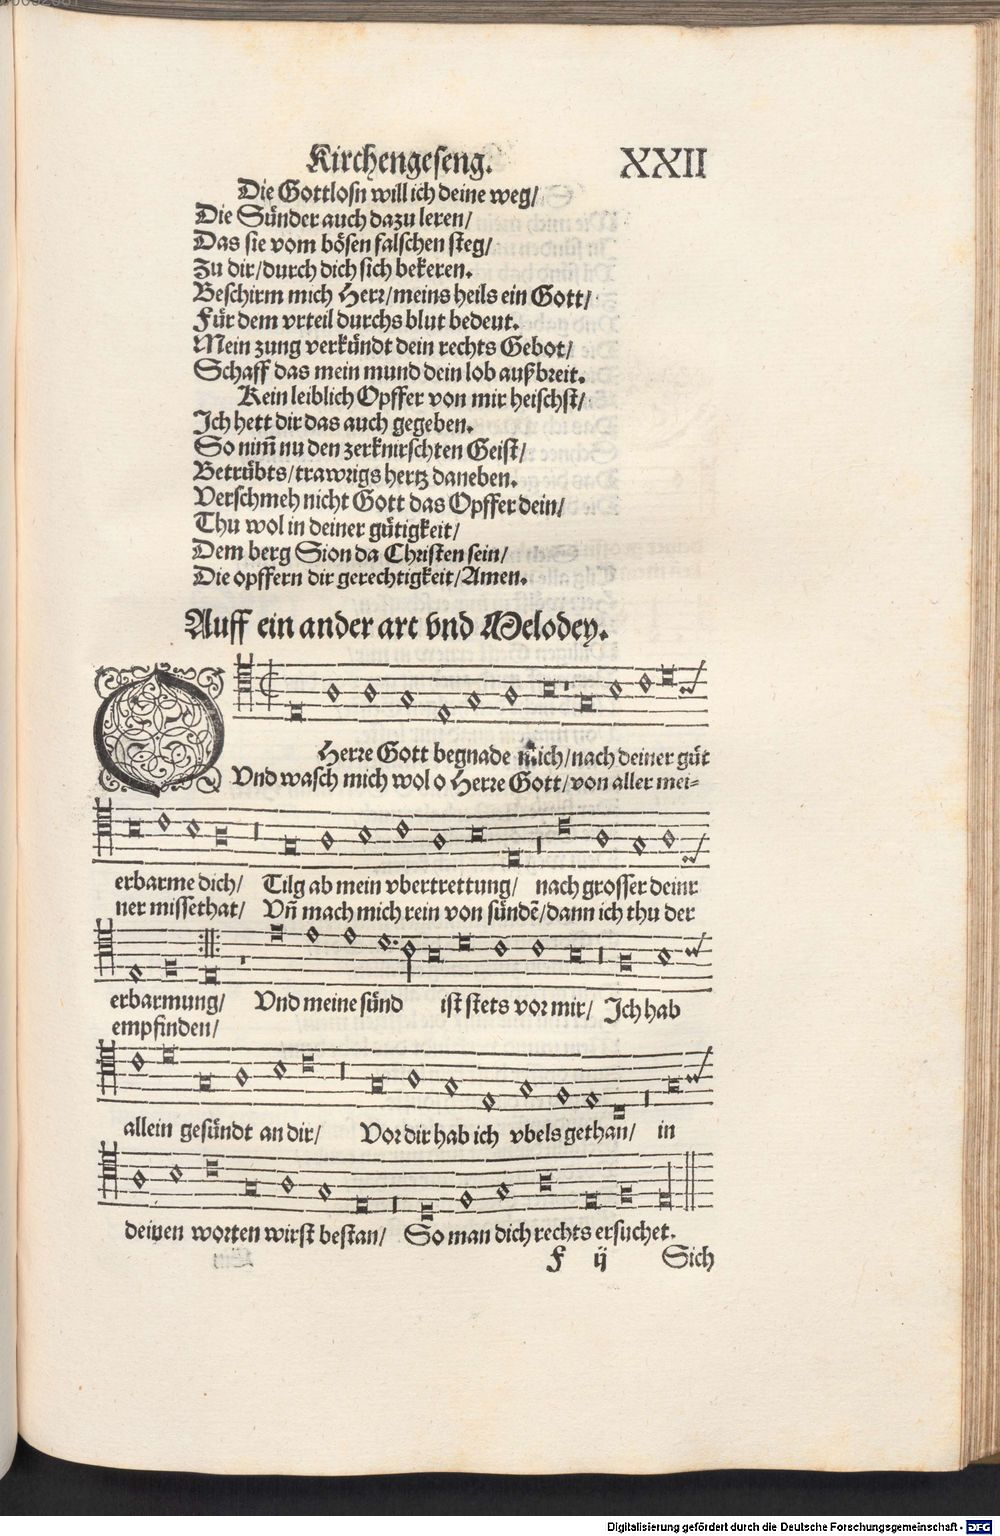 Kirchengeseng. XXII
Die Gottlosn will ich deine weg/
Die Sünder auch dazu leren/
Das sie vom bösen falschen steg/
Zu dir/durch dich sich bekeren.
Beschirm mich Herr/meins heils ein Gott/
Für dem vrteil durchs blut bedeut.
Mein zung verkündt dein rechts Gebot/
Schaff das mein mund dein lob außbreit.
Kein leiblich Opffer von mir heischst/
Ich hett dir das auch gegeben.
So nim̃ nu den zerknirschten Geist/
Betrübts/trawrigs hertz daneben.
Verschmeh nicht Gott das Opffer dein/
Thu wol in deiner gütigkeit/
Dem berg Sion da Christen sein/
Die opffern dir gerechtigkeit/Amen.
Auff ein ander art vnd Melodey.
O Herre Gott begnade mich/nach deiner güt
Vnd wasch mich wol o Herre Gott/von aller mei-
erbarme dich/ Tilg ab mein vbertrettung/ nach grosser deinr
ner missethat/ Vñ mach mich rein von sündẽ/dann ich thu der
erbarmung/ Vnd meine sünd ist stets vor mir/ Ich hab
empfinden/
allein gesündt an dir/ Vor dir hab ich vbels gethan/ in
deinen worten wirst bestan/ So man dich rechts ersuchet.
F ij Sich
Digitalisierung gefördert durch die Deutsche Forschungsgemeinschaft - DFG